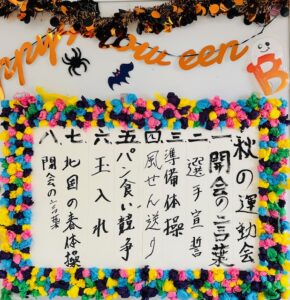 Happy Halloween
B
秋の運動会
一 開会の言葉
二 選手宣誓
三 準備体操
四 風せん送り
五 パン食い競争
六 玉入れ
七 北国の春体操
八 閉会の言葉